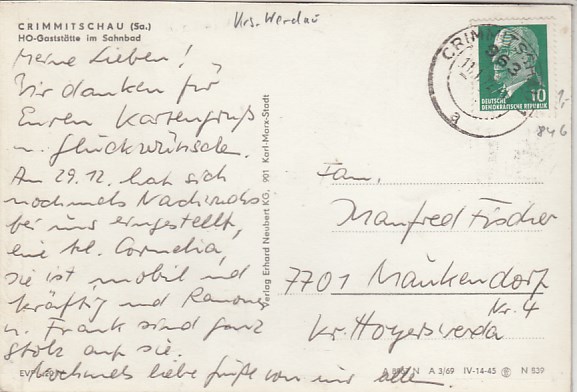 CRIMMITSCHAU (Sa.)
HO-Gaststätte im Sahnbad
Krs. Werdau
Meine Lieben!
Wir danken für
Euren Kartengruß
u. Glückwünsche.
Am 29.12. hat sich
nochmals Nachwuchs
bei uns eingestellt,
eine kl. Cornelia,
sie ist mobil und
kräftig und Ramona
u. Frank sind ganz
stolz auf sie.
Nochmals liebe Grüße von uns allen.
Verlag Erhard Neubert KG, 901 Karl-Marx-Stadt
CRIMMITSCHAU
963
a
10
DEUTSCHE
DEMOKRATISCHE REPUBLIK
846
Fam.
Manfred Fischer
7701 Maukendorf
Nr. 4
Kr. Hoyerswerda
A 3/69 IV-14-45 N 839